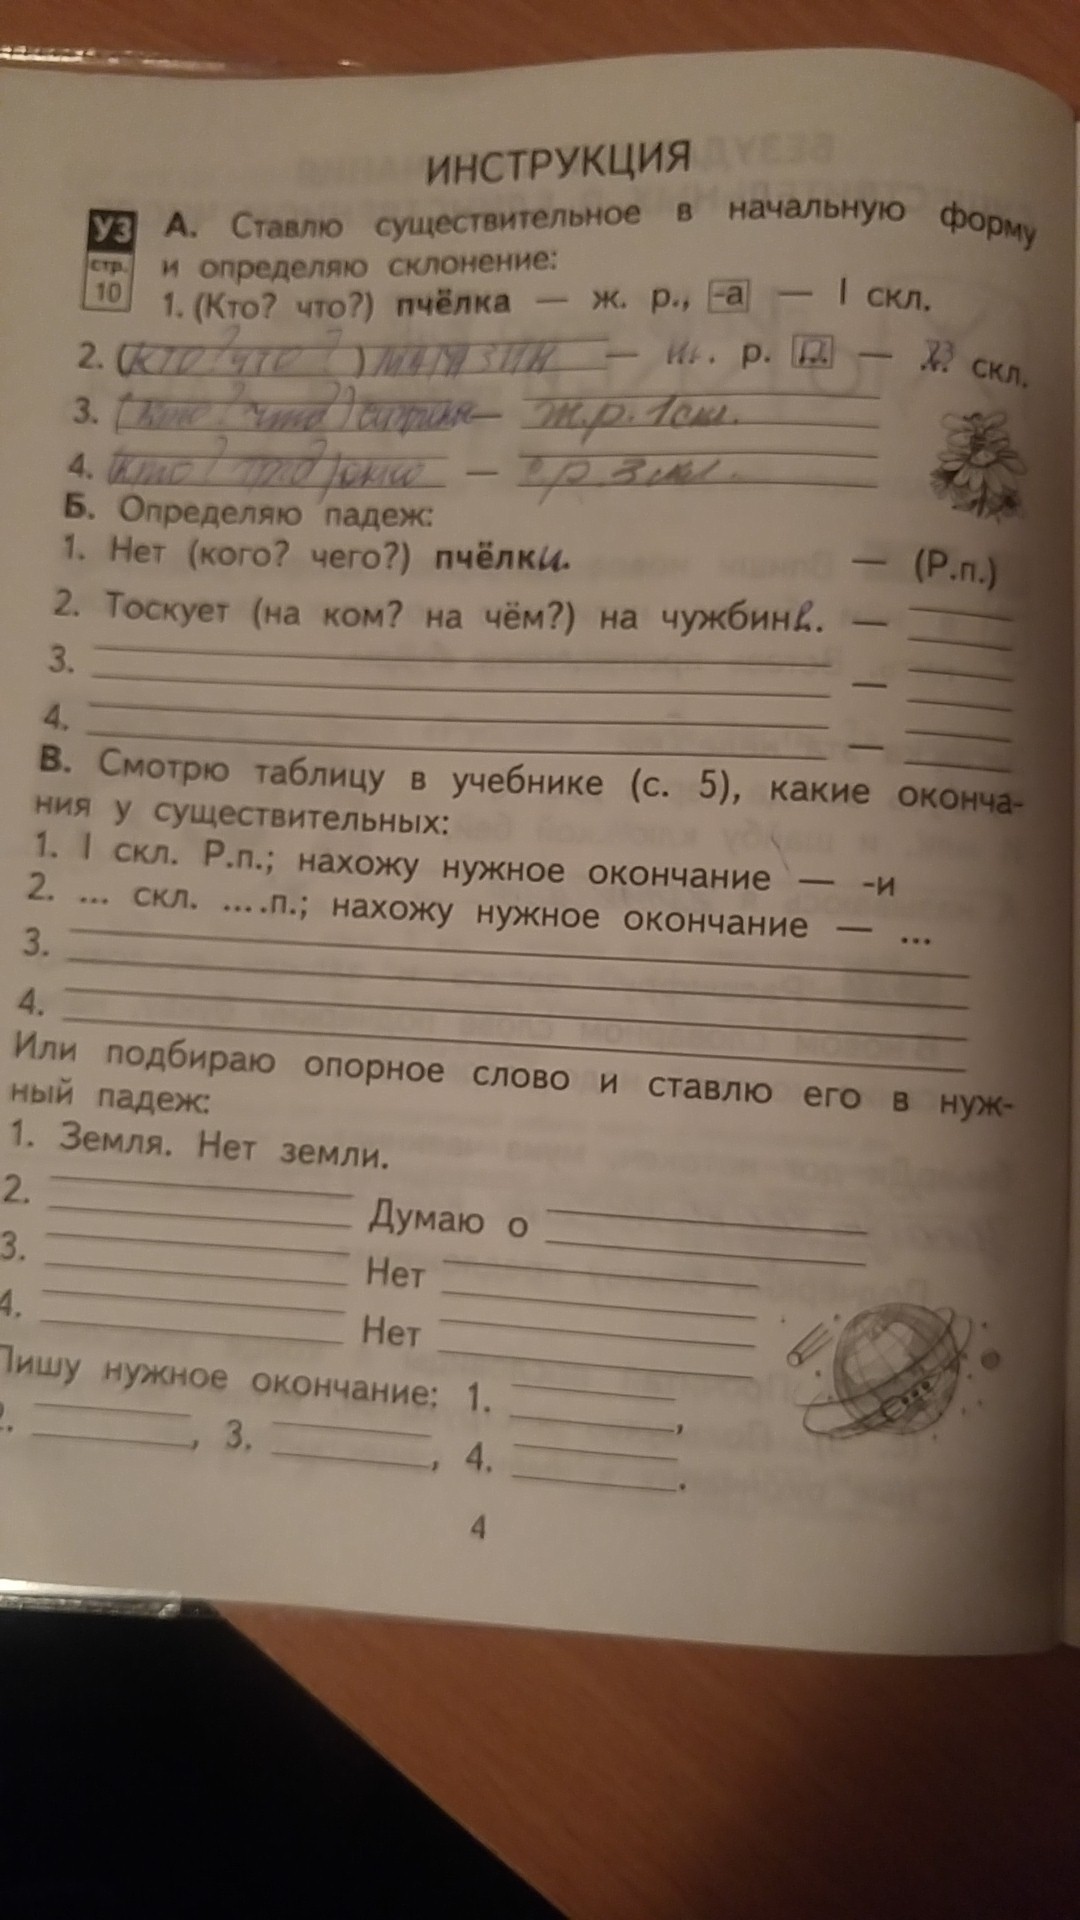 ИНСТРУКЦИЯ
УЗ
стр.
10
А. Ставлю существительное в начальную форму
и определяю склонение:
1. (Кто? что?) пчёлка — ж. р., -а — I скл.
2. (кто? что?) магазин — р. — скл.
3. (кто? что) — ж.р. 1 скл.
4. (кто? ) окно — с р. 3 скл.
Б. Определяю падеж:
1. Нет (кого? чего?) пчёлки. — (Р.п.)
2. Тоскует (на ком? на чём?) на чужбине. —
3. —
4. —
В. Смотрю таблицу в учебнике (с. 5), какие оконча-
ния у существительных:
1. I скл. Р.п.; нахожу нужное окончание — -и
2. ... скл. ... .п.; нахожу нужное окончание — ...
3.
4.
Или подбираю опорное слово и ставлю его в нуж-
ный падеж:
1. Земля. Нет земли.
2. Думаю о
3. Нет
4. Нет
Пишу нужное окончание: 1. ,
2. , 3. , 4. .
4